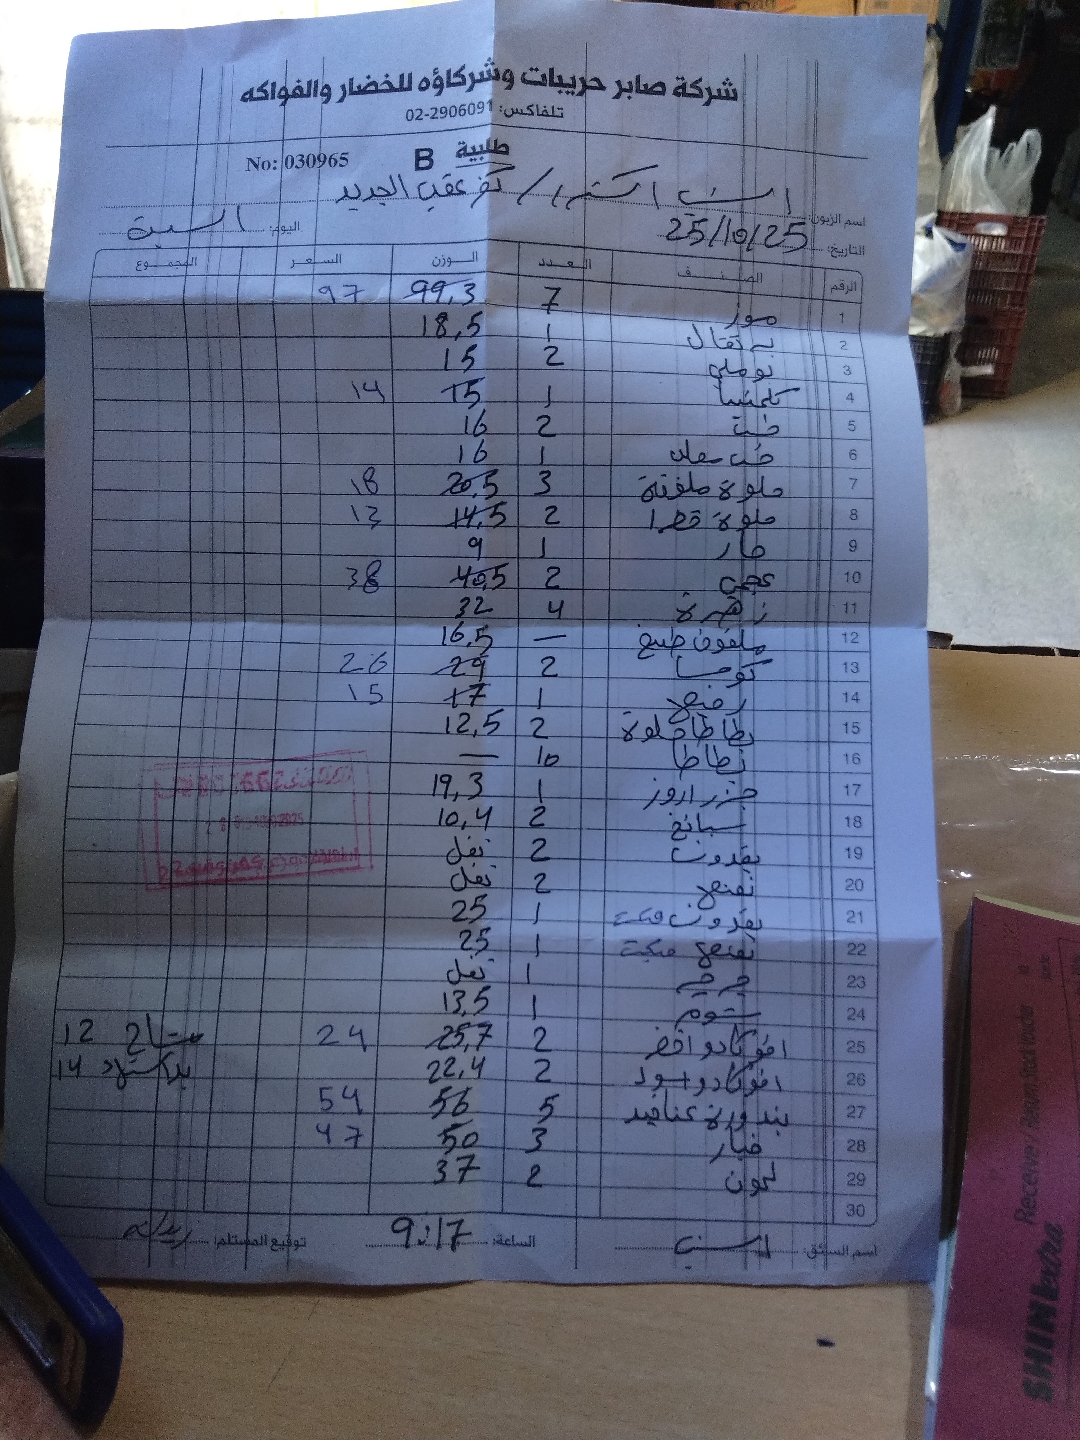 شركة صابر حريبات وشركاؤه للخضار والفواكه
تلفاكس: 02-2906091
طلبية B No: 030965
اسم الزبون: اكسترا / كفر عقب الجديد
التاريخ: 25/10/25 اليوم: السبت
الرقم الصنف العدد الوزن السعر المجموع
1 موز 7 99,3 97
2 برتقال 1 18,5
3 بوملي 2 15
4 كلمنتينا 1 15 14
5 2 16
6 1 16
7 حلوة ملونة 3 20,5 18
8 حلوة 2 14,5 13
9 حار 1 9
10 2 40,5 38
11 زهرة 4 32
12 ملفوف طبيخ — 16,5
13 كوسا 2 29 26
14 1 17 15
15 بطاطا حلوة 2 12,5
16 بطاطا 10 —
17 جزر اروز 1 19,3
18 سبانخ 2 10,4
19 بقدونس 2 نفل
20 نعنع 2 نفل
21 بقدونس 1 25
22 نعنع 1 25
23 جرجير 1 نفل
24 ثوم 1 13,5
25 افوكادو اخضر 2 25,7 24 12
26 افوكادو اسود 2 22,4 14
27 بندورة عناقيد 5 56 54
28 خيار 3 50 47
29 ليمون 2 37
30
اسم السائق: الساعة: 9:17 توقيع المستلم:
SHINextra